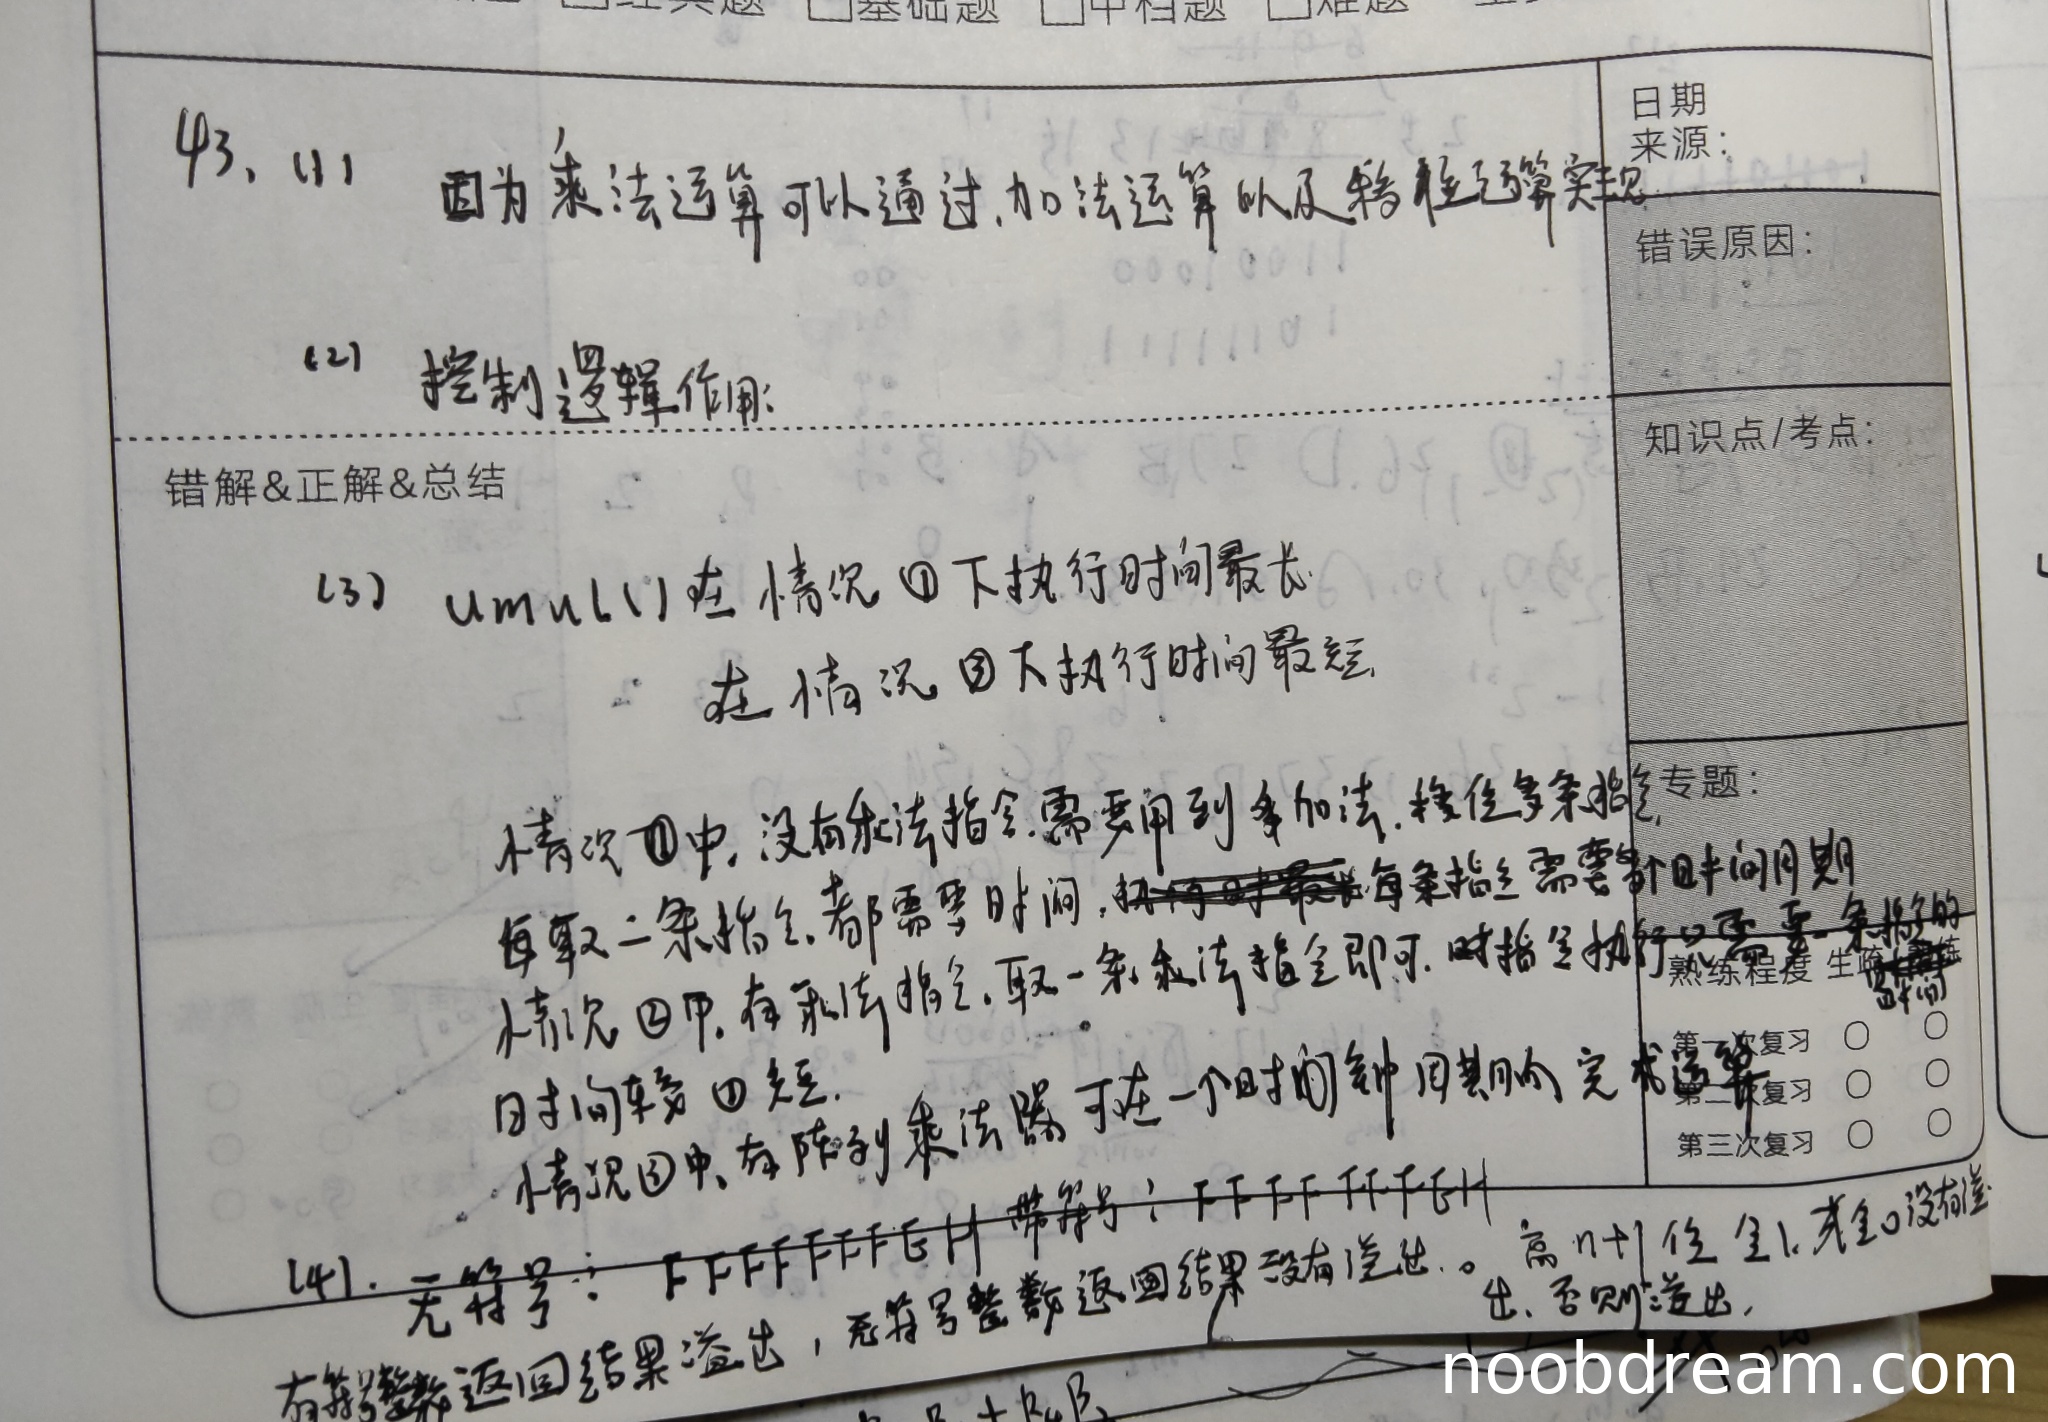 经典题 基础题 中档题 难题
43. (1) 因为乘法运算可以通过加法运算以及移位运算实现
日期
来源:
错误原因:
(2) 控制逻辑作用:
知识点/考点:
错解&正解&总结
(3) umul()在情况①下执行时间最长.
在情况③下执行时间最短.
专题:
情况①中,没有乘法指令.需要用到 加法.移位多条指令.
每取一条指令.都需要时间. 每条指令需要 个时间周期
情况②中.有乘法指令.取一条乘法指令即可. 时指令执行只需要一条指令的
时间
时间较①短.
情况③中,有阵列乘法器可在一个时钟周期内完成运算
熟练程度 生疏 熟练
第一次复习
第二次复习
第三次复习
(4). 无符号: FFFFFFFEH 带符号: FFFFFFFEH
有符号整数返回结果溢出,无符号整数返回结果没有溢出.。高n+1位全1.或全0没有溢
出.否则溢出.
noobdream.com